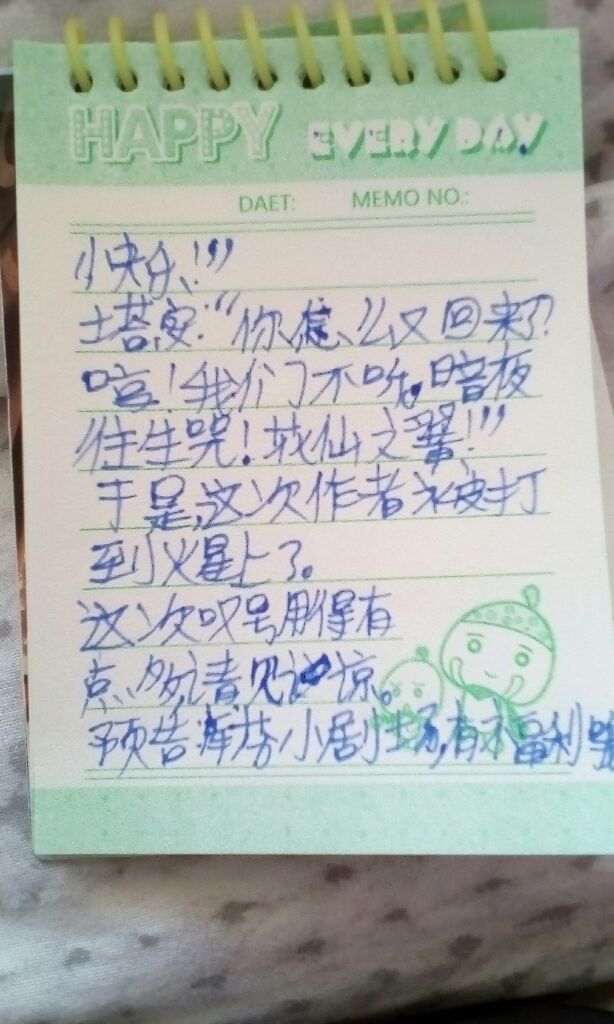 HAPPY EVERY DAY
DAET: MEMO NO.:
小快乐!”
塔安:“你怎么又回来了?
嘻!我们不听。暗夜
往生咒!花仙之翼!”
于是,这次作者被打
到火星上了。
这次叹号用得有
点多,请见谅。
预告:小剧场,有福利